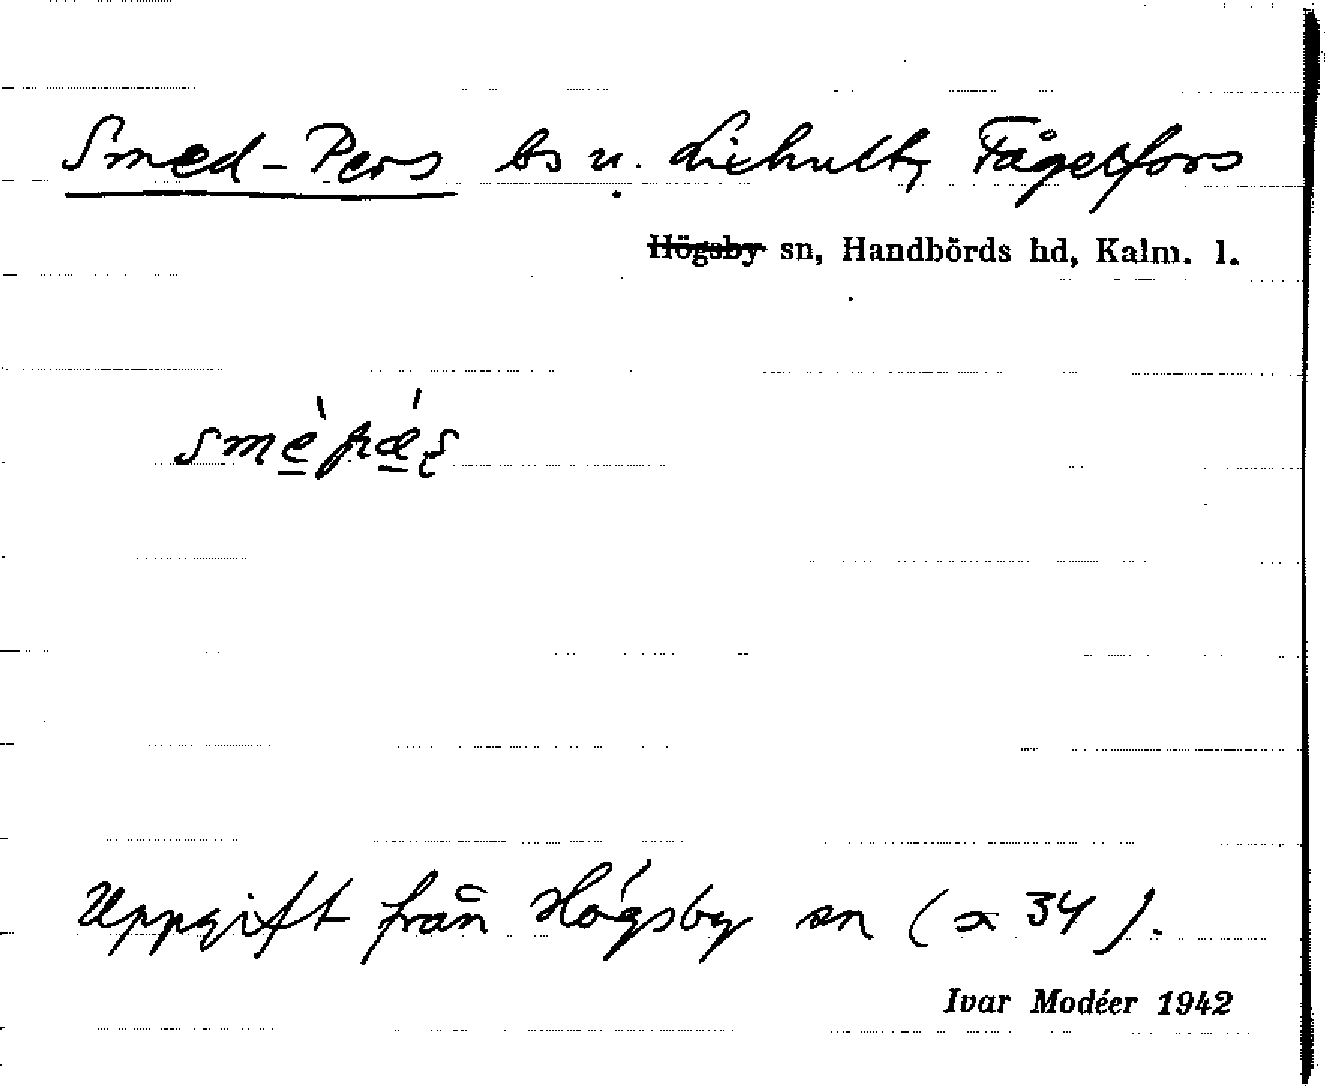 Smed-Pers bs u. Liehult, Fågelfors
Högsby sn, Handbörds hd, Kalm. l.
Uppgift från Högsby sn (x 34).
Ivar Modéer 1942